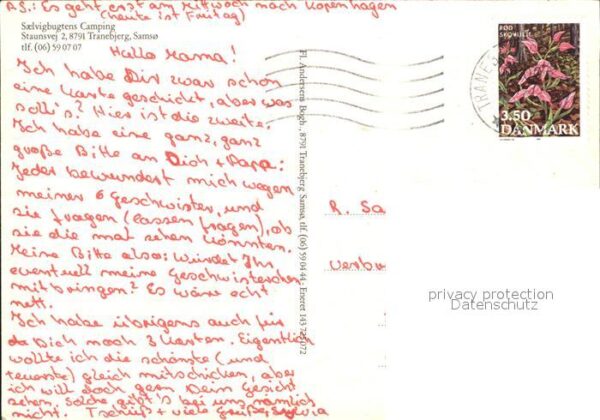 P.S.: Es geht erst am Mittwoch nach Kopenhagen
(heute ist Freitag)
Sælvigbugtens Camping
Staunsvej 2, 8791 Tranebjerg, Samsø
tlf. (06) 59 07 07
Hallo Mama!
Ich habe Dir zwar schon
eine Karte geschickt, aber was
soll's? Hier ist die zweite.
Ich habe eine ganz, ganz
große Bitte an Dich + Papa:
Jeder bewundert mich wegen
meiner 6 Geschwister, und
sie fragen (lassen fragen), ob
sie die mal sehen könnten.
Meine Bitte also: Würdet Ihr
eventuell meine Geschwisterchen
mitbringen? Es wäre echt
nett.
Ich habe übrigens auch für
Dich noch 3 Karten. Eigentlich
wollte ich die schönste (und
teuerste) gleich mitschicken, aber
ich will doch gern Dein Gesicht
sehen. Solche gibt's bei uns nämlich
nicht. Tschüß + viele Grüße,
Fl. Andersens Bogh., 8791 Tranebjerg Samsø, tlf. (06) 59 04 44 - Eneret
R. Sa
Verbu
TRANE
RØD
SKOVLILJE
3.50
DANMARK
privacy protection
Datenschutz